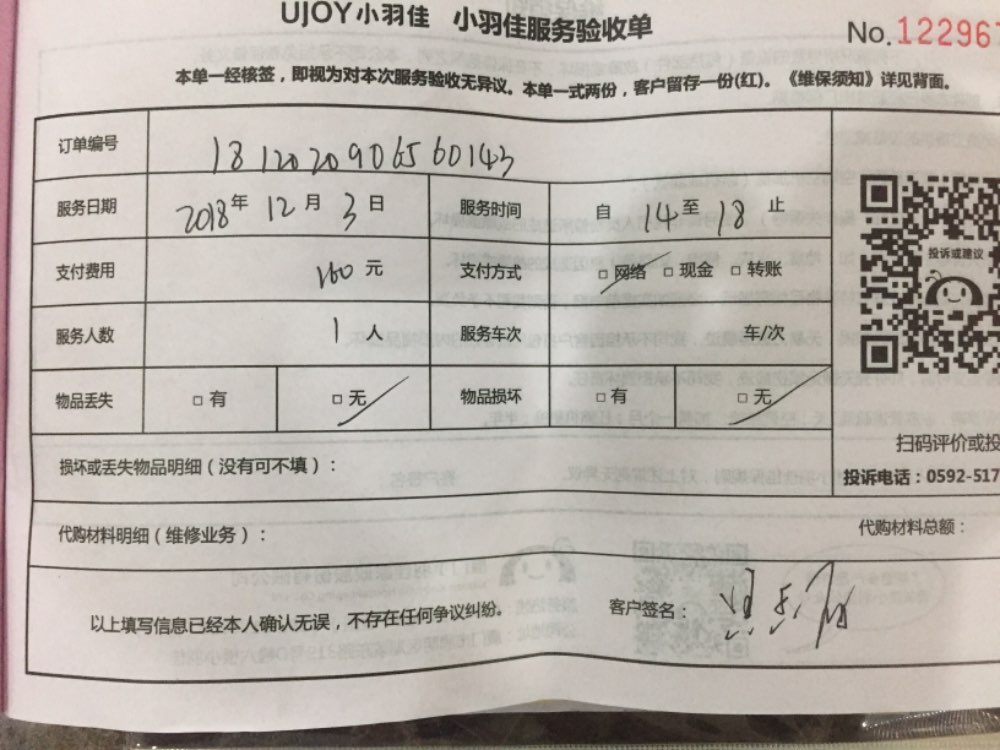 UJOY小羽佳 小羽佳服务验收单
No.122967
本单一经核签，即视为对本次服务验收无异议。本单一式两份，客户留存一份(红)。《维保须知》详见背面。
订单编号 1812020906560143
服务日期 2018年12月3日 服务时间 自14至18止
支付费用 160元 支付方式 □网络 □现金 □转账
投诉或建议
服务人数 1人 服务车次 车/次
物品丢失 □有 □无 物品损坏 □有 □无
扫码评价或投
损坏或丢失物品明细（没有可不填）：
投诉电话：0592-517
代购材料明细（维修业务）：
代购材料总额：
以上填写信息已经本人确认无误，不存在任何争议纠纷。
客户签名：